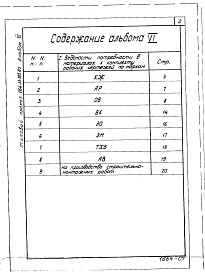 2
Содержание альбома VI
N. N. п. п.
2. Ведомости потребности в материалах к комплекту рабочих чертежей по маркам
Стр.
1 КЖ
2 АР 7
3 ОВ 8
4 ВК 14
5 ЭО 16
6 ЭМ 17
7 ТХЗ 18
8 АВ 19
9 на производство строительно-монтажных работ 20
Типовой проект
Альбом
1664-07